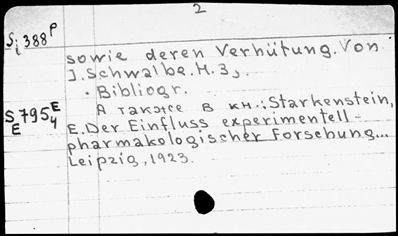 2
Si 388 P
sowie deren Verhütung. Von
J. Schwalbe. H. 3,.
· Bibliogr.
S 795 E
E 4
А также в кн.: Starkenstein,
E. Der Einfluss experimentell-
pharmakologischer Forschung...
Leipzig, 1923.